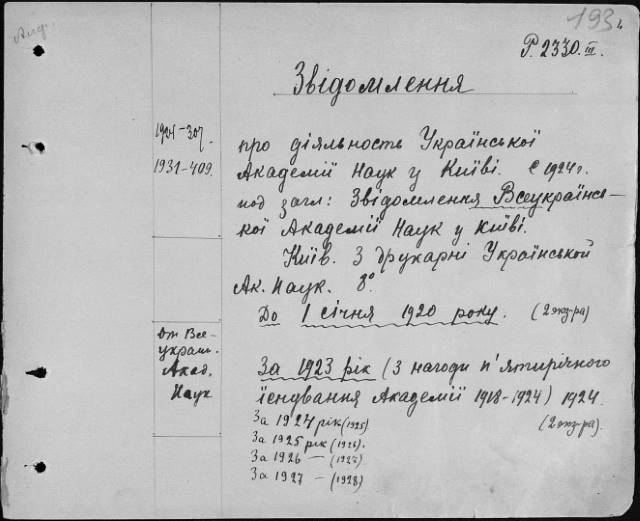 Алф.
193
Р. 2330. III.
Звідомлення
1924-307.
1931-409.
про діяльность Української
Академії Наук у Київі. с 1924 г.
под загл: Звідомлення Всеукраїнсь-
кої Академії Наук у Київі.
Київ. З друкарні Української
Ак. Наук. 8°
До 1 січня 1920 року. (2 экз-ра)
От Все-
украин.
Акад.
Наук
За 1923 рік (З нагоди п'ятирічного
існування Академії 1918-1924) 1924
(2 экз-ра)
За 1924 рік (1925)
За 1925 рік (1926).
За 1926 — (1927)
За 1927 — (1928)